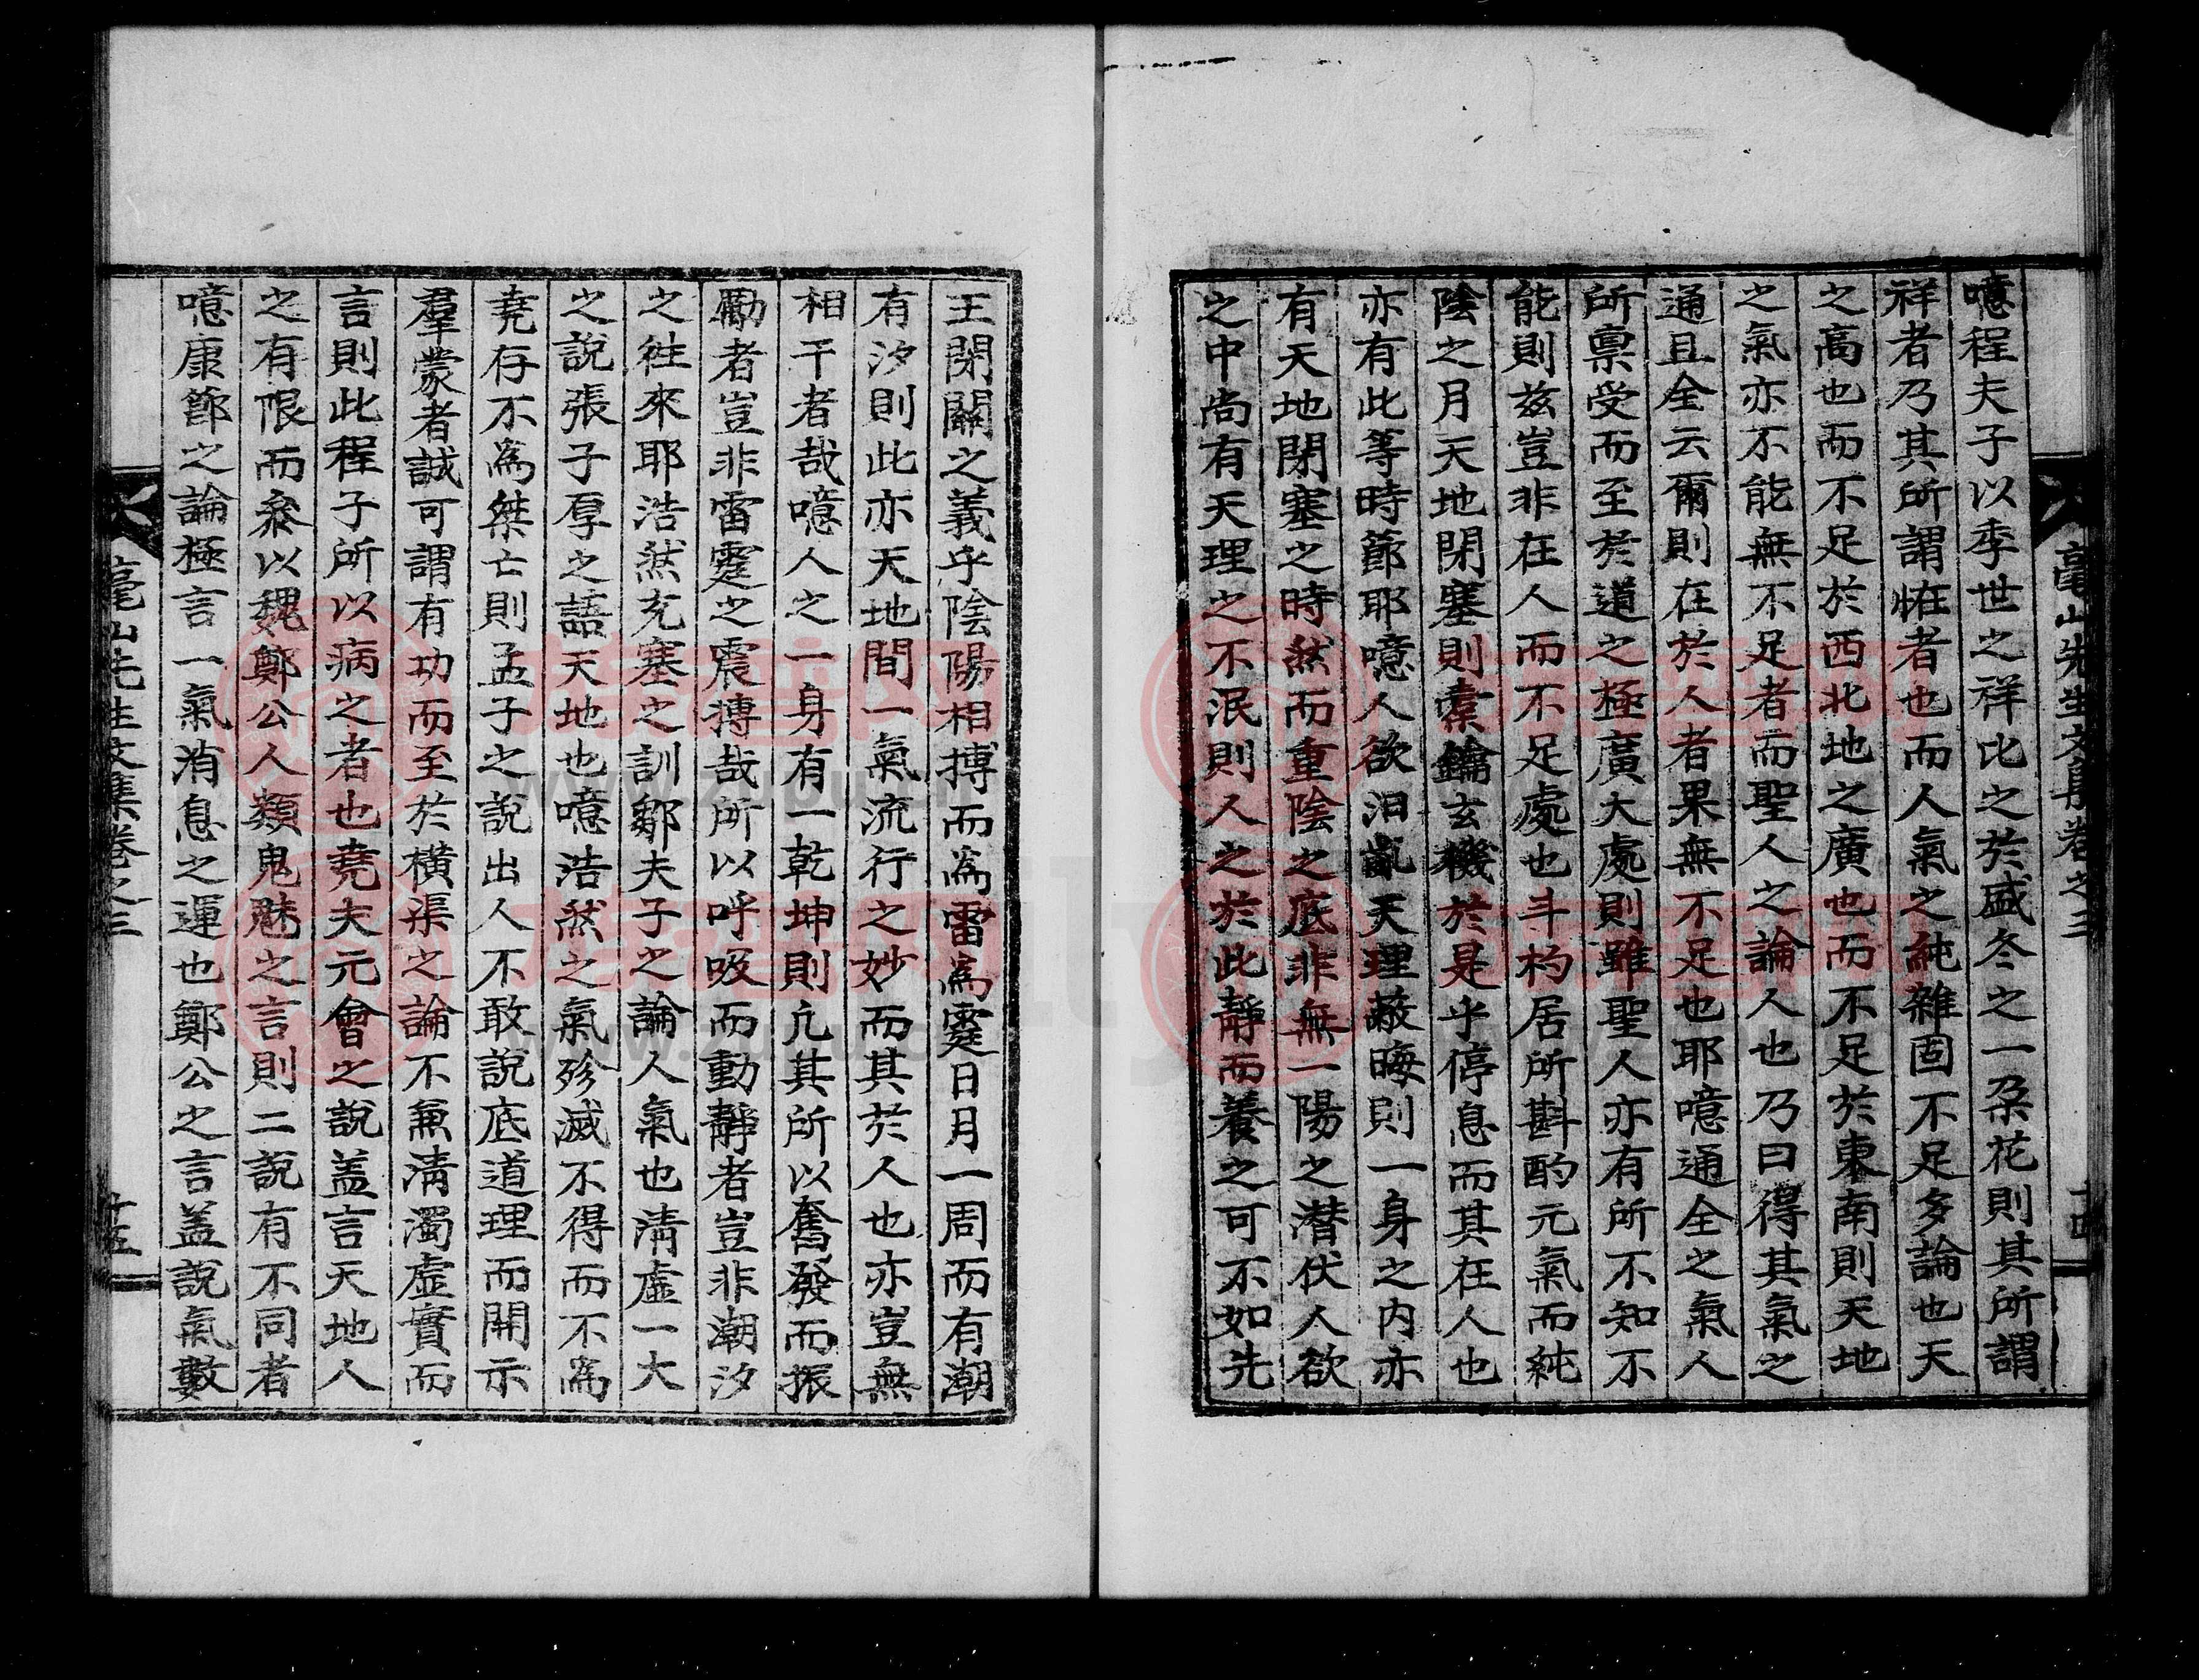 噫程夫子以季世之祥比之於盛冬之一朶花則其所謂
祥者乃其所謂恠者也而人氣之純雜固不足多論也天
之高也而不足於西北地之廣也而不足於東南則天地
之氣亦不能無不足者而聖人之論人也乃曰得其氣之
通且全云爾則在於人者果無不足也耶噫通全之氣人
所禀受而至於道之極廣大處則雖聖人亦有所不知不
能則玆豈非在人而不足處也斗杓居所斟酌元氣而純
陰之月天地閉塞則橐鑰玄機於是乎停息而其在人也
亦有此等時節耶噫人欲汨亂天理蔽晦則一身之內亦
有天地閉塞之時然而重陰之底非無一陽之潜伏人欲
之中尚有天理之不泯則人之於此靜而養之可不如先
亳山先生文集卷之三
十四
王閉關之義乎陰陽相搏而爲雷爲霆日月一周而有潮
有汐則此亦天地間一氣流行之妙而其於人也亦豈無
相干者哉噫人之一身有一乾坤則亢其所以奮發而振
勵者豈非雷霆之震摶哉所以呼吸而動靜者豈非潮汐
之往來耶浩然充塞之訓鄒夫子之論人氣也清虛一大
之說張子厚之語天地也噫浩然之氣殄滅不得而不爲
堯存不爲桀亡則孟子之說出人不敢說底道理而開示
羣蒙者誠可謂有功而至於橫渠之論不兼清濁虛實而
言則此程子所以病之者也堯夫元會之說盖言天地人
之有限而叅以魏鄭公人類鬼魅之言則二說有不同者
噫康節之論極言一氣消息之運也鄭公之言盖說氣數
亳山先生文集卷之三
十五